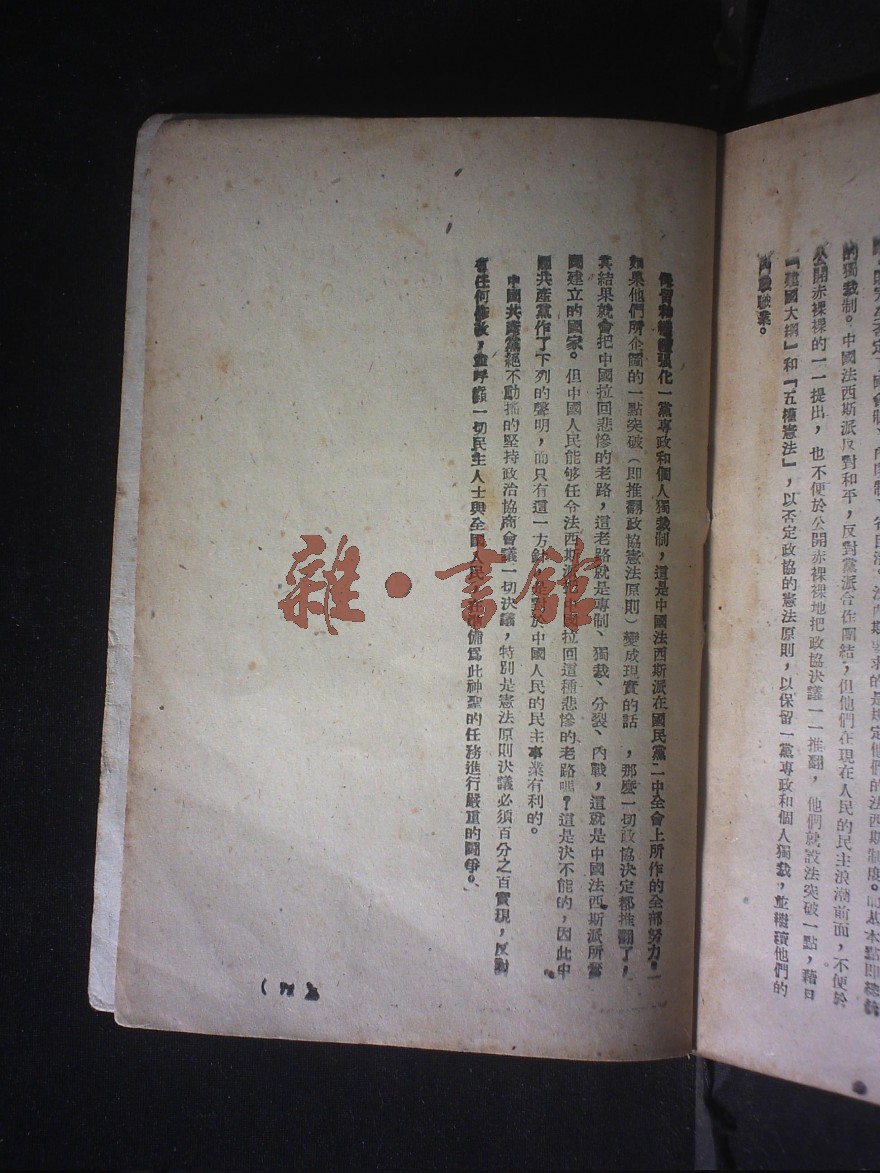 的獨裁制。中國法西斯派反對和平，反對黨派合作團結，但他們在現在人民的民主浪潮前面，不便於
公開赤裸裸的一一提出，也不便於公開赤裸裸地把政協決議一一推翻，他們就設法突破一點，藉口
『建國大綱』和『五權憲法』，以否定政協的憲法原則，以保留一黨專政和個人獨裁，並繼續他們的
內戰職業。
保留和繼續強化一黨專政和個人獨裁制，這是中國法西斯派在國民黨二中全會上所作的全部努力。
如果他們所企圖的一點突破（即推翻政協憲法原則）變成現實的話，那麼一切政協決定都推翻了，
其結果就會把中國拉回悲慘的老路，這老路就是專制、獨裁、分裂、內戰，這就是中國法西斯派所
圖建立的國家。但中國人民能够任令法西斯派把中國拉回這種悲慘的老路嗎？這是決不能的，因此中
國共產黨作了下列的聲明，而只有這一方針是對於中國人民的民主事業有利的。
中國共產黨絕不動搖的堅持政治協商會議一切決議，特別是憲法原則決議必須百分之百實現，反對
有任何修改，並呼籲一切民主人士與全國人民準備爲此神聖的任務進行嚴重的鬪爭。
雜·書館